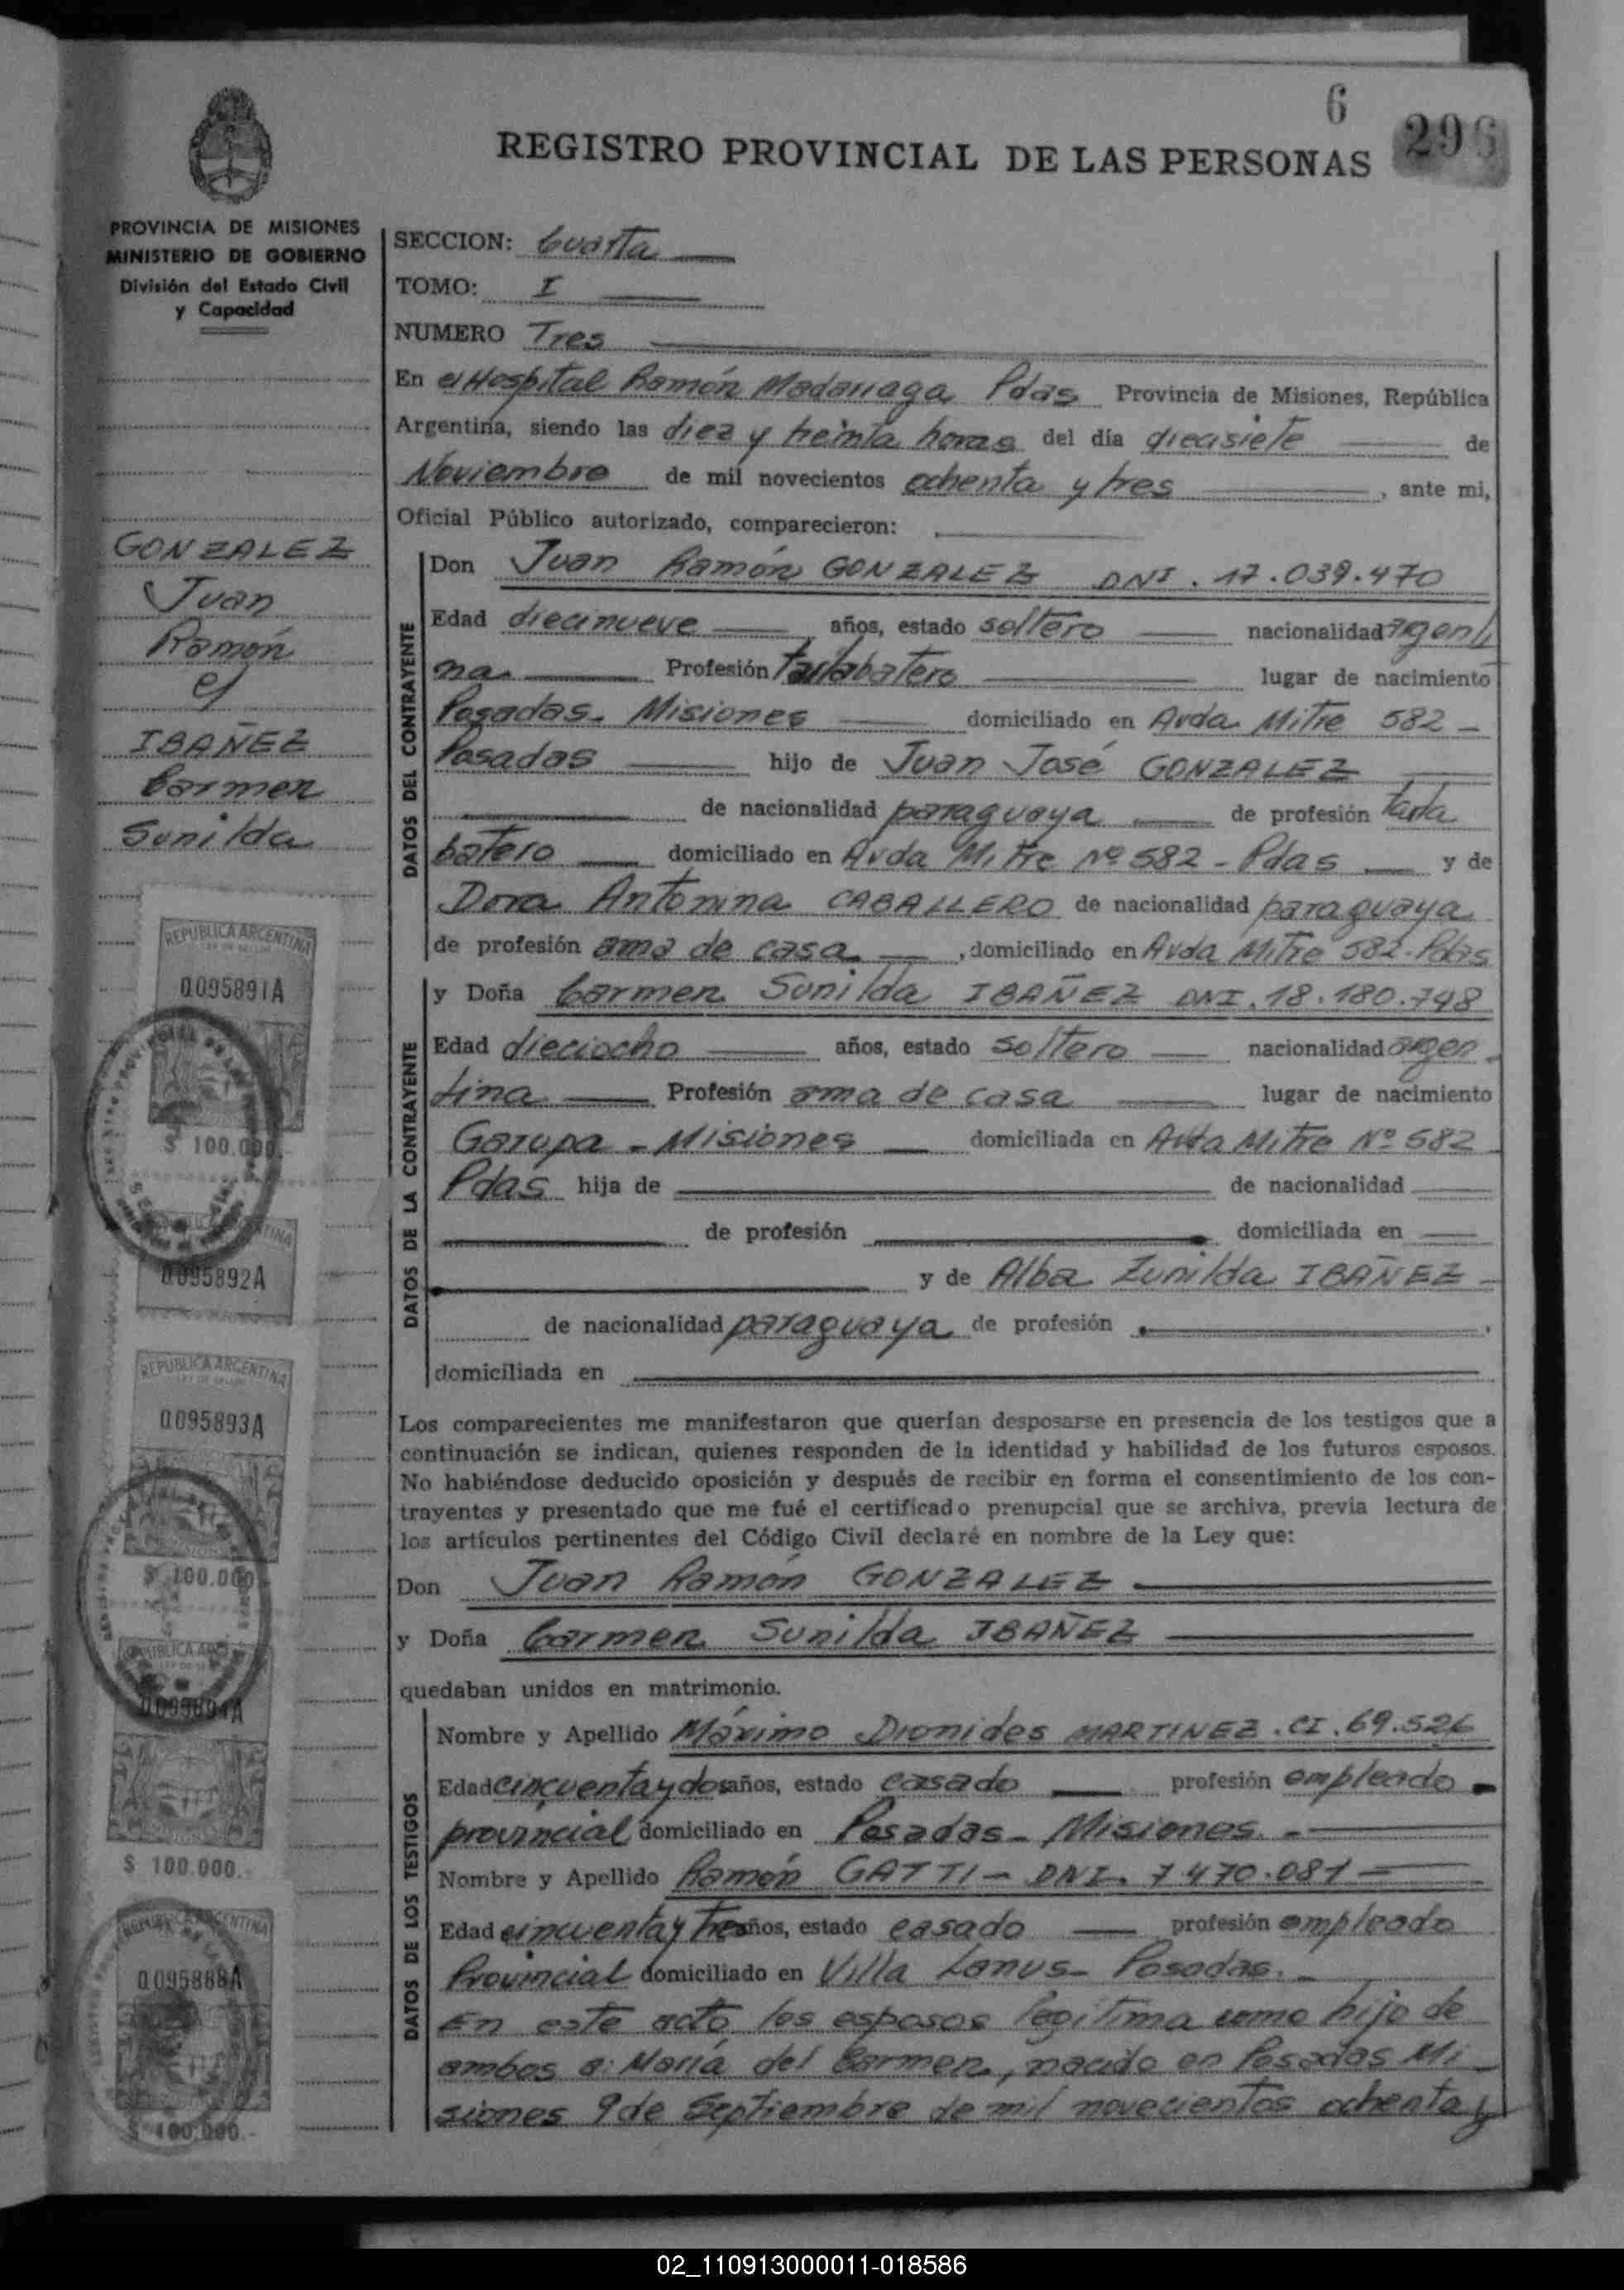 6
296
REGISTRO PROVINCIAL DE LAS PERSONAS
PROVINCIA DE MISIONES
MINISTERIO DE GOBIERNO
División del Estado Civil
y Capacidad
SECCION: Cuarta
TOMO: I
NUMERO Tres
En el Hospital Ramón Madariaga Pdas Provincia de Misiones, República
Argentina, siendo las diez y treinta horas del día diecisiete de
Noviembre de mil novecientos ochenta y tres, ante mi,
Oficial Público autorizado, comparecieron:
GONZALEZ
Juan
Ramón
e/
IBAÑEZ
Carmen
Sunilda
DATOS DEL CONTRAYENTE
Don Juan Ramón GONZALEZ DNI. 17.039.470
Edad diecinueve años, estado soltero nacionalidad argenti
na Profesión lugar de nacimiento
Posadas. Misiones domiciliado en Avda Mitre 582 -
Posadas hijo de Juan José GONZALEZ
de nacionalidad paraguaya de profesión
batero domiciliado en Avda Mitre Nº 582 - Pdas y de
Dora Antonina CABALLERO de nacionalidad paraguaya
de profesión ama de casa, domiciliado en Avda Mitre 582-Pdas
DATOS DE LA CONTRAYENTE
y Doña Carmen Sunilda IBAÑEZ DNI. 18.180.748
Edad dieciocho años, estado soltero nacionalidad argen
tina Profesión ama de casa lugar de nacimiento
Garupa - Misiones domiciliada en Avda Mitre Nº 582
Pdas hija de de nacionalidad
de profesión domiciliada en
y de Alba Zunilda IBAÑEZ -
de nacionalidad paraguaya de profesión
domiciliada en
Los comparecientes me manifestaron que querían desposarse en presencia de los testigos que a
continuación se indican, quienes responden de la identidad y habilidad de los futuros esposos.
No habiéndose deducido oposición y después de recibir en forma el consentimiento de los con-
trayentes y presentado que me fué el certificado prenupcial que se archiva, previa lectura de
los artículos pertinentes del Código Civil declaré en nombre de la Ley que:
Don Juan Ramón GONZALEZ
y Doña Carmen Sunilda IBAÑEZ
quedaban unidos en matrimonio.
DATOS DE LOS TESTIGOS
Nombre y Apellido Máximo Dionides MARTINEZ. CI. 69.526
Edad cincuenta y dos años, estado casado profesión empleado
provincial domiciliado en Posadas - Misiones. -
Nombre y Apellido Ramón GATTI - DNI. 7.470.081
Edad cincuenta y tres años, estado casado profesión empleado
Provincial domiciliado en Villa Lanus - Posadas. -
En este acto los esposos legitima como hijo de
ambos a: María del Carmen, nacido en Posadas Mi
siones 9 de Septiembre de mil novecientos ochenta y
REPUBLICA ARGENTINA
0.095891A
$ 100.000.-
0.095892A
REPUBLICA ARGENTINA
0.095893A
$ 100.000
0.095894A
$ 100.000.-
0.095888A
$ 100.000.-
02_110913000011-018586